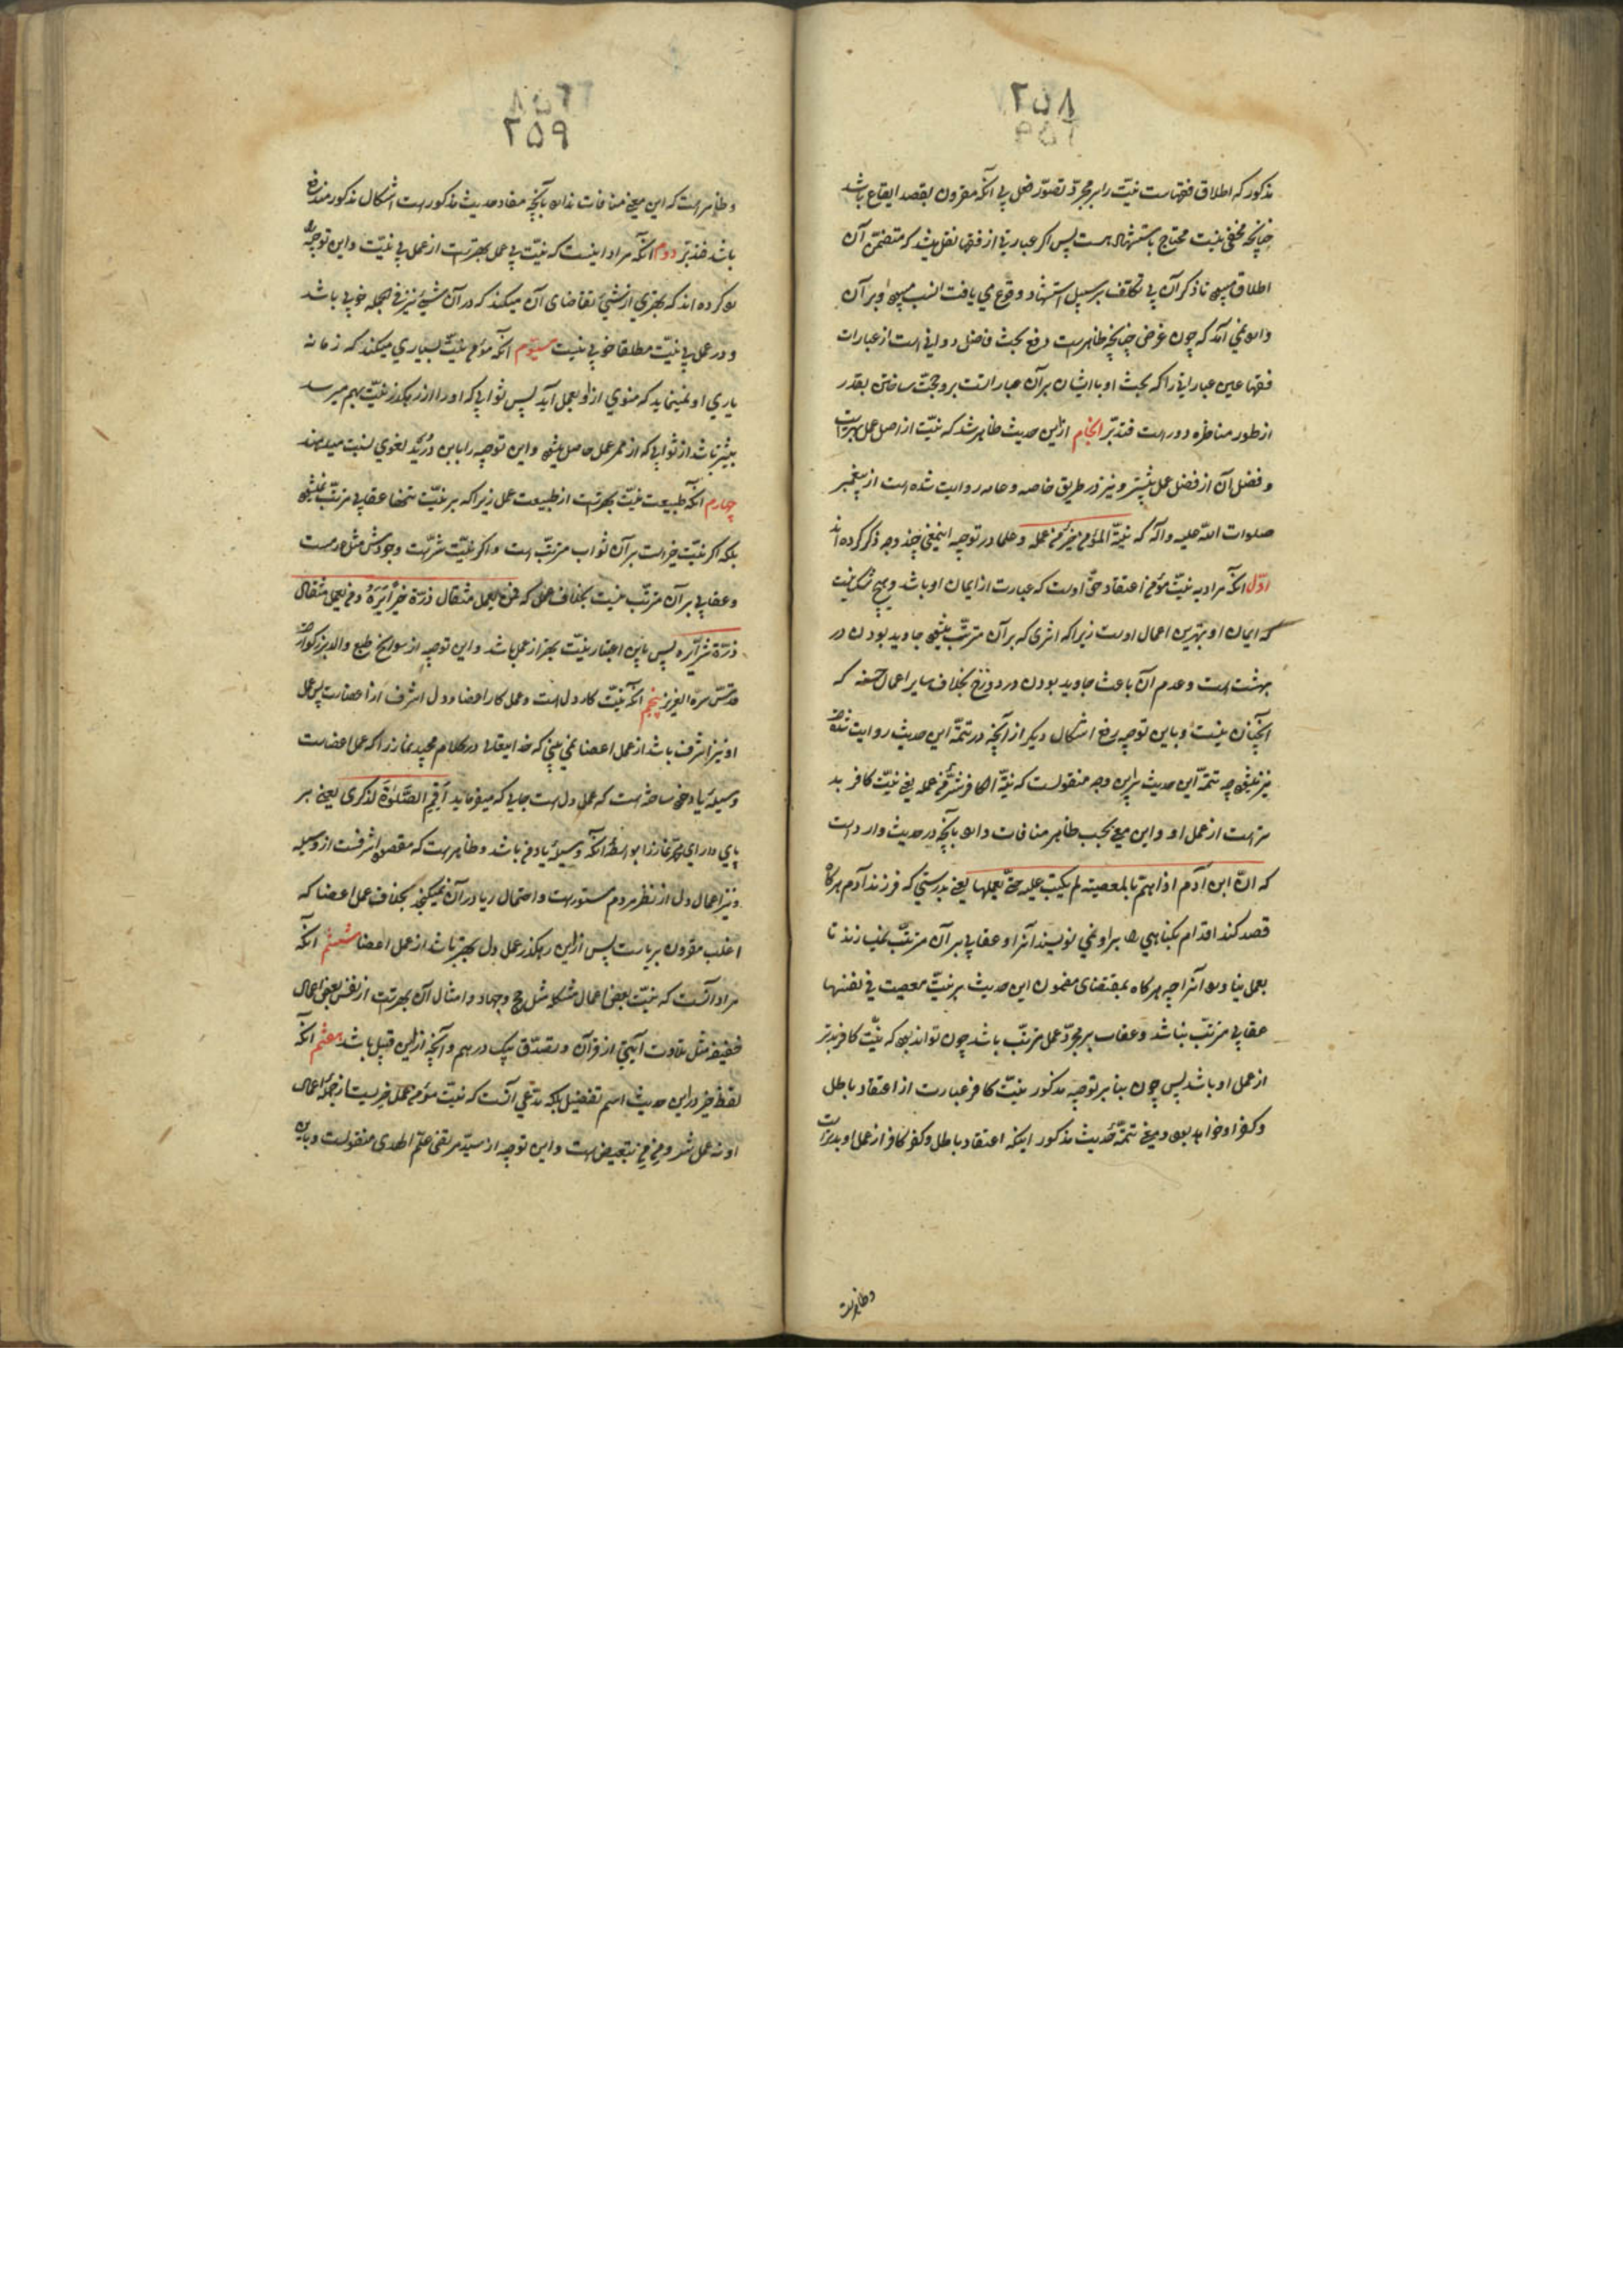 ۲۵۸
مذکور که اطلاق فقهاست نیّت را بر مجرّد تصوّر فعل بی آنکه مقرون بقصد ایقاع باشد
چنانچه مخفی نیست محتاج باستشهاد هست پس اگر عبارتی از فقها نقل میشد که متضمّن آن
اطلاق میبود تا ذکر آن بی تکلّف بر سبیل استشهاد وقوع می یافت انسب میبود و بر آن
وارد نمی آمد که چون غرض چنانچه ظاهرست دفع بحث فاضل دوانی است از عبارات
فقها عین عباراتی را که بحث او با ایشان بر آن عبارات است برو حجّت ساختن بقدر
از طور مناظره دور است فتدبّر انجام ازین حدیث ظاهر شد که نیّت از اصل عمل بهتر است
و فضل آن از فضل عمل بیشتر و نیز در طریق خاصه و عامه روایت شده است از پیغمبر
صلوات اللّه علیه و آله که نیّة المؤمن خیر من عمله و علما در توجیه اینمعنی چند وجه ذکر کرده اند
اوّل آنکه مراد به نیّت مؤمن اعتقاد حقّ اوست که عبارت از ایمان او باشد و هیچ شک نیست
که ایمان او بهترین اعمال اوست زیرا که اثری که بر آن مترتّب میشود جاوید بودن در
بهشت است و عدم آن باعث جاوید بودن در دوزخ بخلاف سایر اعمال حسنه که
آنچنان نیست و باین توجیه رفع اشکال دیگر از آنچه در تتمّه این حدیث روایت شده
نیز میشود چه تتمّه این حدیث براین وجه منقولست که نیّة الکافر شرّ من عمله یعنی نیّت کافر بد
تر است از عمل او و این معنی بحسب ظاهر منافات دارد بآنچه در حدیث وارد است
که انّ ابن آدم اذا همّ بالمعصیة لم یکتب علیه حتّی یعملها یعنی بدرستی که فرزند آدم هرگاه
قصد کند اقدام بگناهی را بر او نمی نویسند آنرا و عقابی بر آن مترتّب نمیسازند تا
بعمل نیاورد آنرا چه هرگاه بمقتضای مضمون این حدیث بر نیّت معصیت فی نفسها
عقابی مترتّب نباشد و عقاب بر مجرّد عمل مترتّب باشد چون تواند بود که نیّت کافر بدتر
از عمل او باشد پس چون بنا بر توجیه مذکور نیّت کافر عبارت از اعتقاد باطل
و کفر او خواهد بود و معنی تتمّه حدیث مذکور اینکه اعتقاد باطل و کفر کافر از عمل او بدتر است
و ظاهرست
۲۵۹
و ظاهر است که این معنی منافات ندارد بآنچه مفاد حدیث مذکور است اشکال مذکور مندفع
باشد فتدبّر دوم آنکه مراد اینست که نیّت بی عمل بهتر است از عمل بی نیّت و این توجیه را
رد کرده اند که بهتری از شیئ تقاضای آن میکند که در آن شیئ نیز فی الجمله خوبی باشد
و در عمل بی نیّت مطلقا خوبی نیست سیوّم آنکه مؤمن نیّت بسیاری میکند که زمانه
یاری او نمینماید که منوی از او بعمل آید پس ثوابی که او را از رهگذر نیّت بهم میرسد
بیشتر باشد از ثوابی که از ممر عمل حاصل میشود و این توجیه را بابن درید لغوی نسبت میدهند
چهارم آنکه طبیعت نیّت بهتر است از طبیعت عمل زیرا که بر نیّت تنها عقابی مترتّب نمیشود
بلکه اگر نیّت خیر است بر آن ثواب مترتّب است و اگر نیّت شرّ است وجودش مثل عدمست
و عقابی بر آن مترتّب نیست بخلاف عمل که فمن یعمل مثقال ذرّة خیرا یره و من یعمل مثقال
ذرّة شرّا یره پس باین اعتبار نیّت بهتر از عمل باشد و این توجیه از سوانح طبع والد بزرگوار
قدّس سرّه العزیز پنجم آنکه نیّت کار دل است و عمل کار اعضا و دل اشرف از اعضاست پس عمل
او نیز اشرف باشد از عمل اعضا نمی بینی که خدایتعالی در کلام مجید نماز را که عمل اعضاست
وسیله یاد خود ساخته است که عمل دل است جایی که میفرماید أقم الصّلوة لذکری یعنی بر
پای دار ای محمّد نماز را بواسطه آنکه وسیله یاد من باشد و ظاهر است که مقصود اشرفست از وسیله
و نیز اعمال دل از نظر مردم مستور است و احتمال ریا در آن نمیگنجد بخلاف عمل اعضا که
اغلب مقرون بریاست پس ازین رهگذر عمل دل بهتر باشد از عمل اعضا ششم آنکه
مراد آنست که نیّت بعض اعمال مشکله مثل حج و جهاد و امثال آن بهتر است از نفس بعض اعمال
خفیفه مثل تلاوت آیتی از قرآن و تصدّق بیک درهم و آنچه ازین قبیل باشد هفتم آنکه
لفظ خیر درین حدیث اسم تفضیل بلکه مدّعی آنست که نیّت مؤمن عمل خیریست از جمله اعمال
او نه عمل شر و من تبعیض است و این توجیه از سیّد مرتضی علم الهدی منقولست و باین